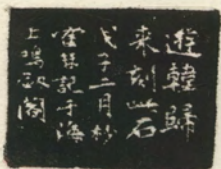 遊韓歸
来刻此石
戊子二月杪
記于海
上鳴閣